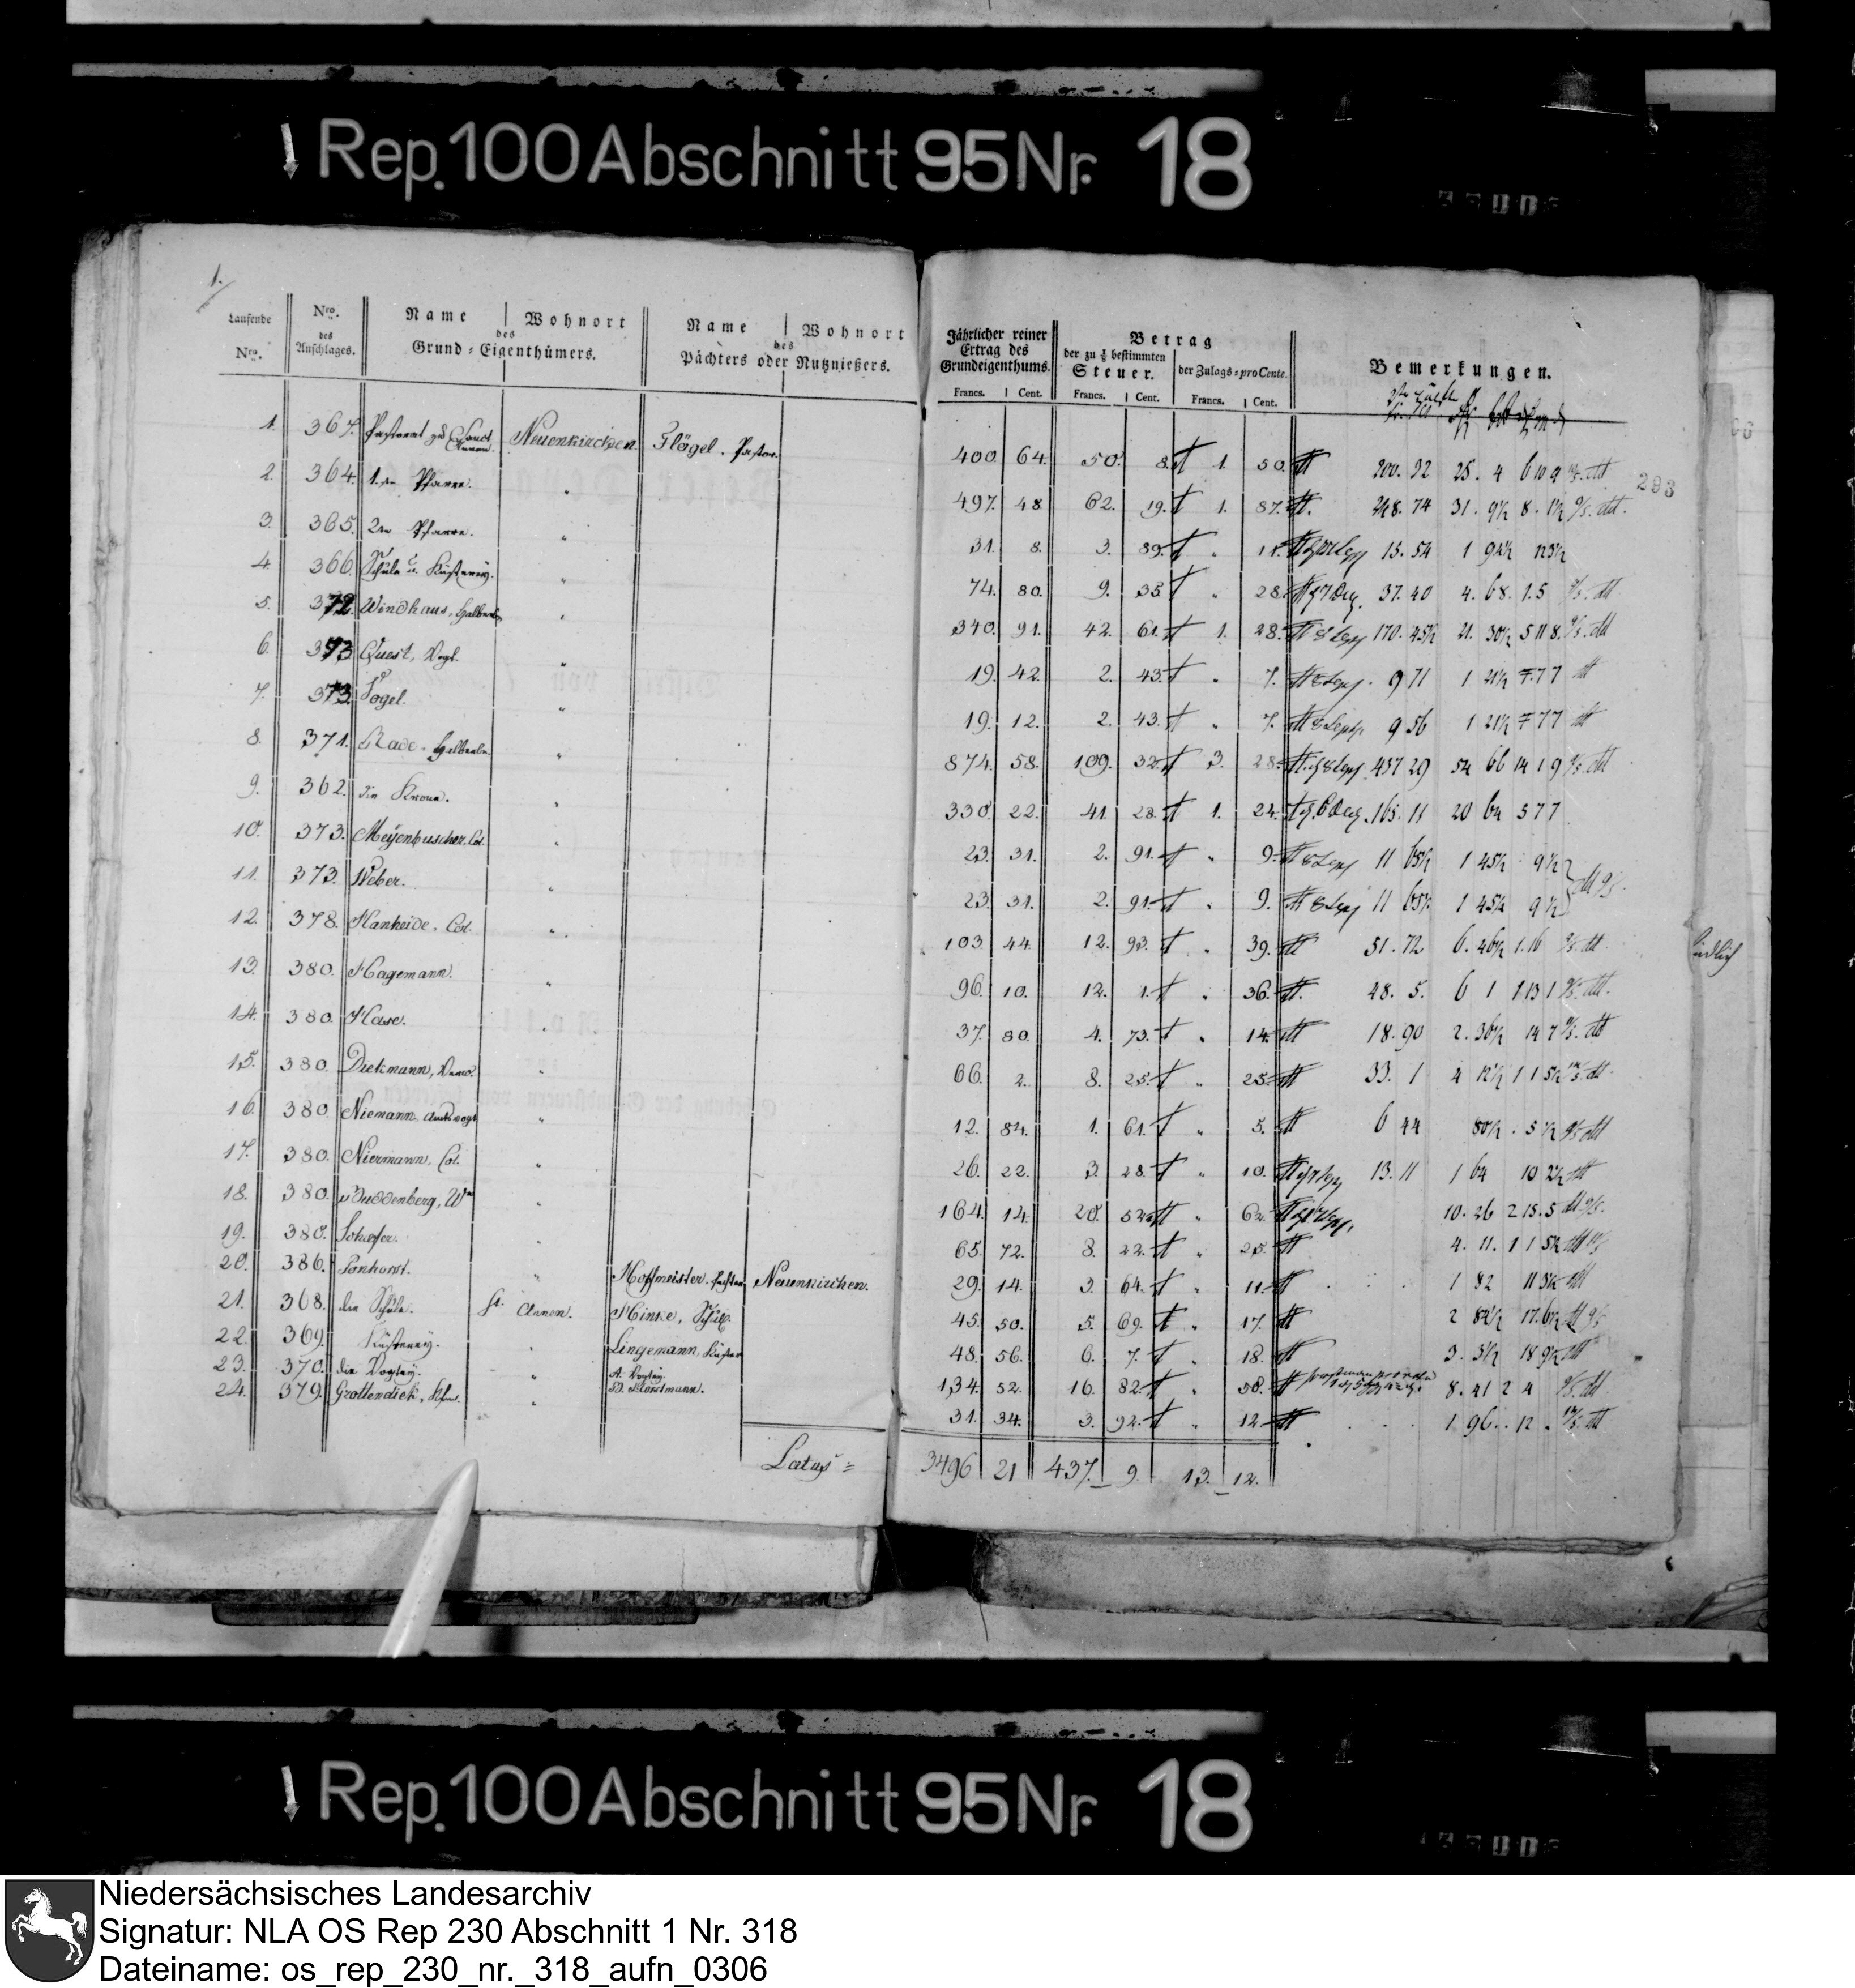 Rep. 100 Abschnitt 95 Nr. 18
1.
Laufende Nro.
Nro. des Anschlages.
Name | Wohnort
des
Grund-Eigenthümers.
Name | Wohnort
des
Pächters oder Nutznießers.
Jährlicher reiner Ertrag des Grundeigenthums.
Francs. | Cent.
Betrag
der zu 1/8 bestimmten Steuer.
Francs. | Cent.
der Zulags-proCente.
Francs. | Cent.
Bemerkungen.
1. 367. Pastorat zu Sanct Annen. Neuenkirchen Flögel, Pastor. 400. 64. 50. 8. 1. 50. 200. 32 25. 4
2. 364. 1ste Pfarre. " 497. 48 62. 19. 1. 87. 248. 74 31. 9½
3. 365. 2te Pfarre. " 31. 8. 3. 89. " 15. 54
4. 366. Schule u. Küsterey. " 74. 80. 9. 35 " 28. 37. 40 4. 68. 1. 5
5. 372. Windhaus, Halberbe " 340. 91. 42. 61. 1. 28. 170. 45½ 21. 30½ 5 11 8.
6. 373 Quest, Vogt. " 19. 42. 2. 43. " 7. 9 71 1 21½
7. 373. Vogel. " 19. 12. 2. 43. " 7. 9 56 1 21½
8. 371. Rade, Halberbe. " 874. 58. 109. 32. 3. 28. 437 29 54 66 14 1 9
9. 362. die Krone. " 330. 22. 41. 28. 1. 24. 165. 11 20 64 5 7 7
10. 373. Meyenbuscher, Col. " 23. 31. 2. 91. " 9. 11 65½ 1 45½ 9½
11. 373. Weber. " 23. 31. 2. 91. " 9. 11 65½ 1 45½ 9½
12. 378. Hanheide, Col. " 103. 44. 12. 93. " 39. 51. 72 6. 46½ 1. 16
13. 380. Hagemann. " 96. 10. 12. 1. " 36. 48. 5. 6 1 1 13 1
14. 380. Hase. " 37. 80. 4. 73. " 14. 18. 90 2. 36½ 14 7
15. 380. Diekmann, " 66. 2. 8. 25. " 25. 33. 1 4 12½ 1 1 5½
16. 380. Niemann, Amtsvogt " 12. 84. 1. 61. " 5. 6 44 80½ . 5½
17. 380. Niermann, Col. " 26. 22. 3. 28. " 10. 13. 11 1 64 10 2½
18. 380. v Buddenberg, Wwe " 164. 14. 20. 52. " 62. 10. 26 2 15. 5
19. 380. Schaefer. " 65. 72. 8. 22. " 25. 4. 11. 1 1 5½
20. 386. Ponhorst. " Hoffmeister, Pachter Neuenkirchen. 29. 14. 3. 64. " 11. 1 82 11 3½
21. 368. die Schule. St. Annen. Hinke, Schul. 45. 50. 5. 69. " 17. 2 84½ 17. 6½
22. 369. Küsterey. " Lingemann, Küster 48. 56. 6. 7. " 18. 3. 3½ 18 9½
23. 370. die Vogtey. " A. Vogtey. 134. 52. 16. 82. " 50. 8. 41 2 4
24. 379. Grottendiek, " B. Horstmann. 31. 34. 3. 92. " 12. 1. 96. . 12
Latus = 3496 21 437. 9. 13. 12.
293
Rep. 100 Abschnitt 95 Nr. 18
Niedersächsisches Landesarchiv
Signatur: NLA OS Rep 230 Abschnitt 1 Nr. 318
Dateiname: os_rep_230_nr._318_aufn_0306